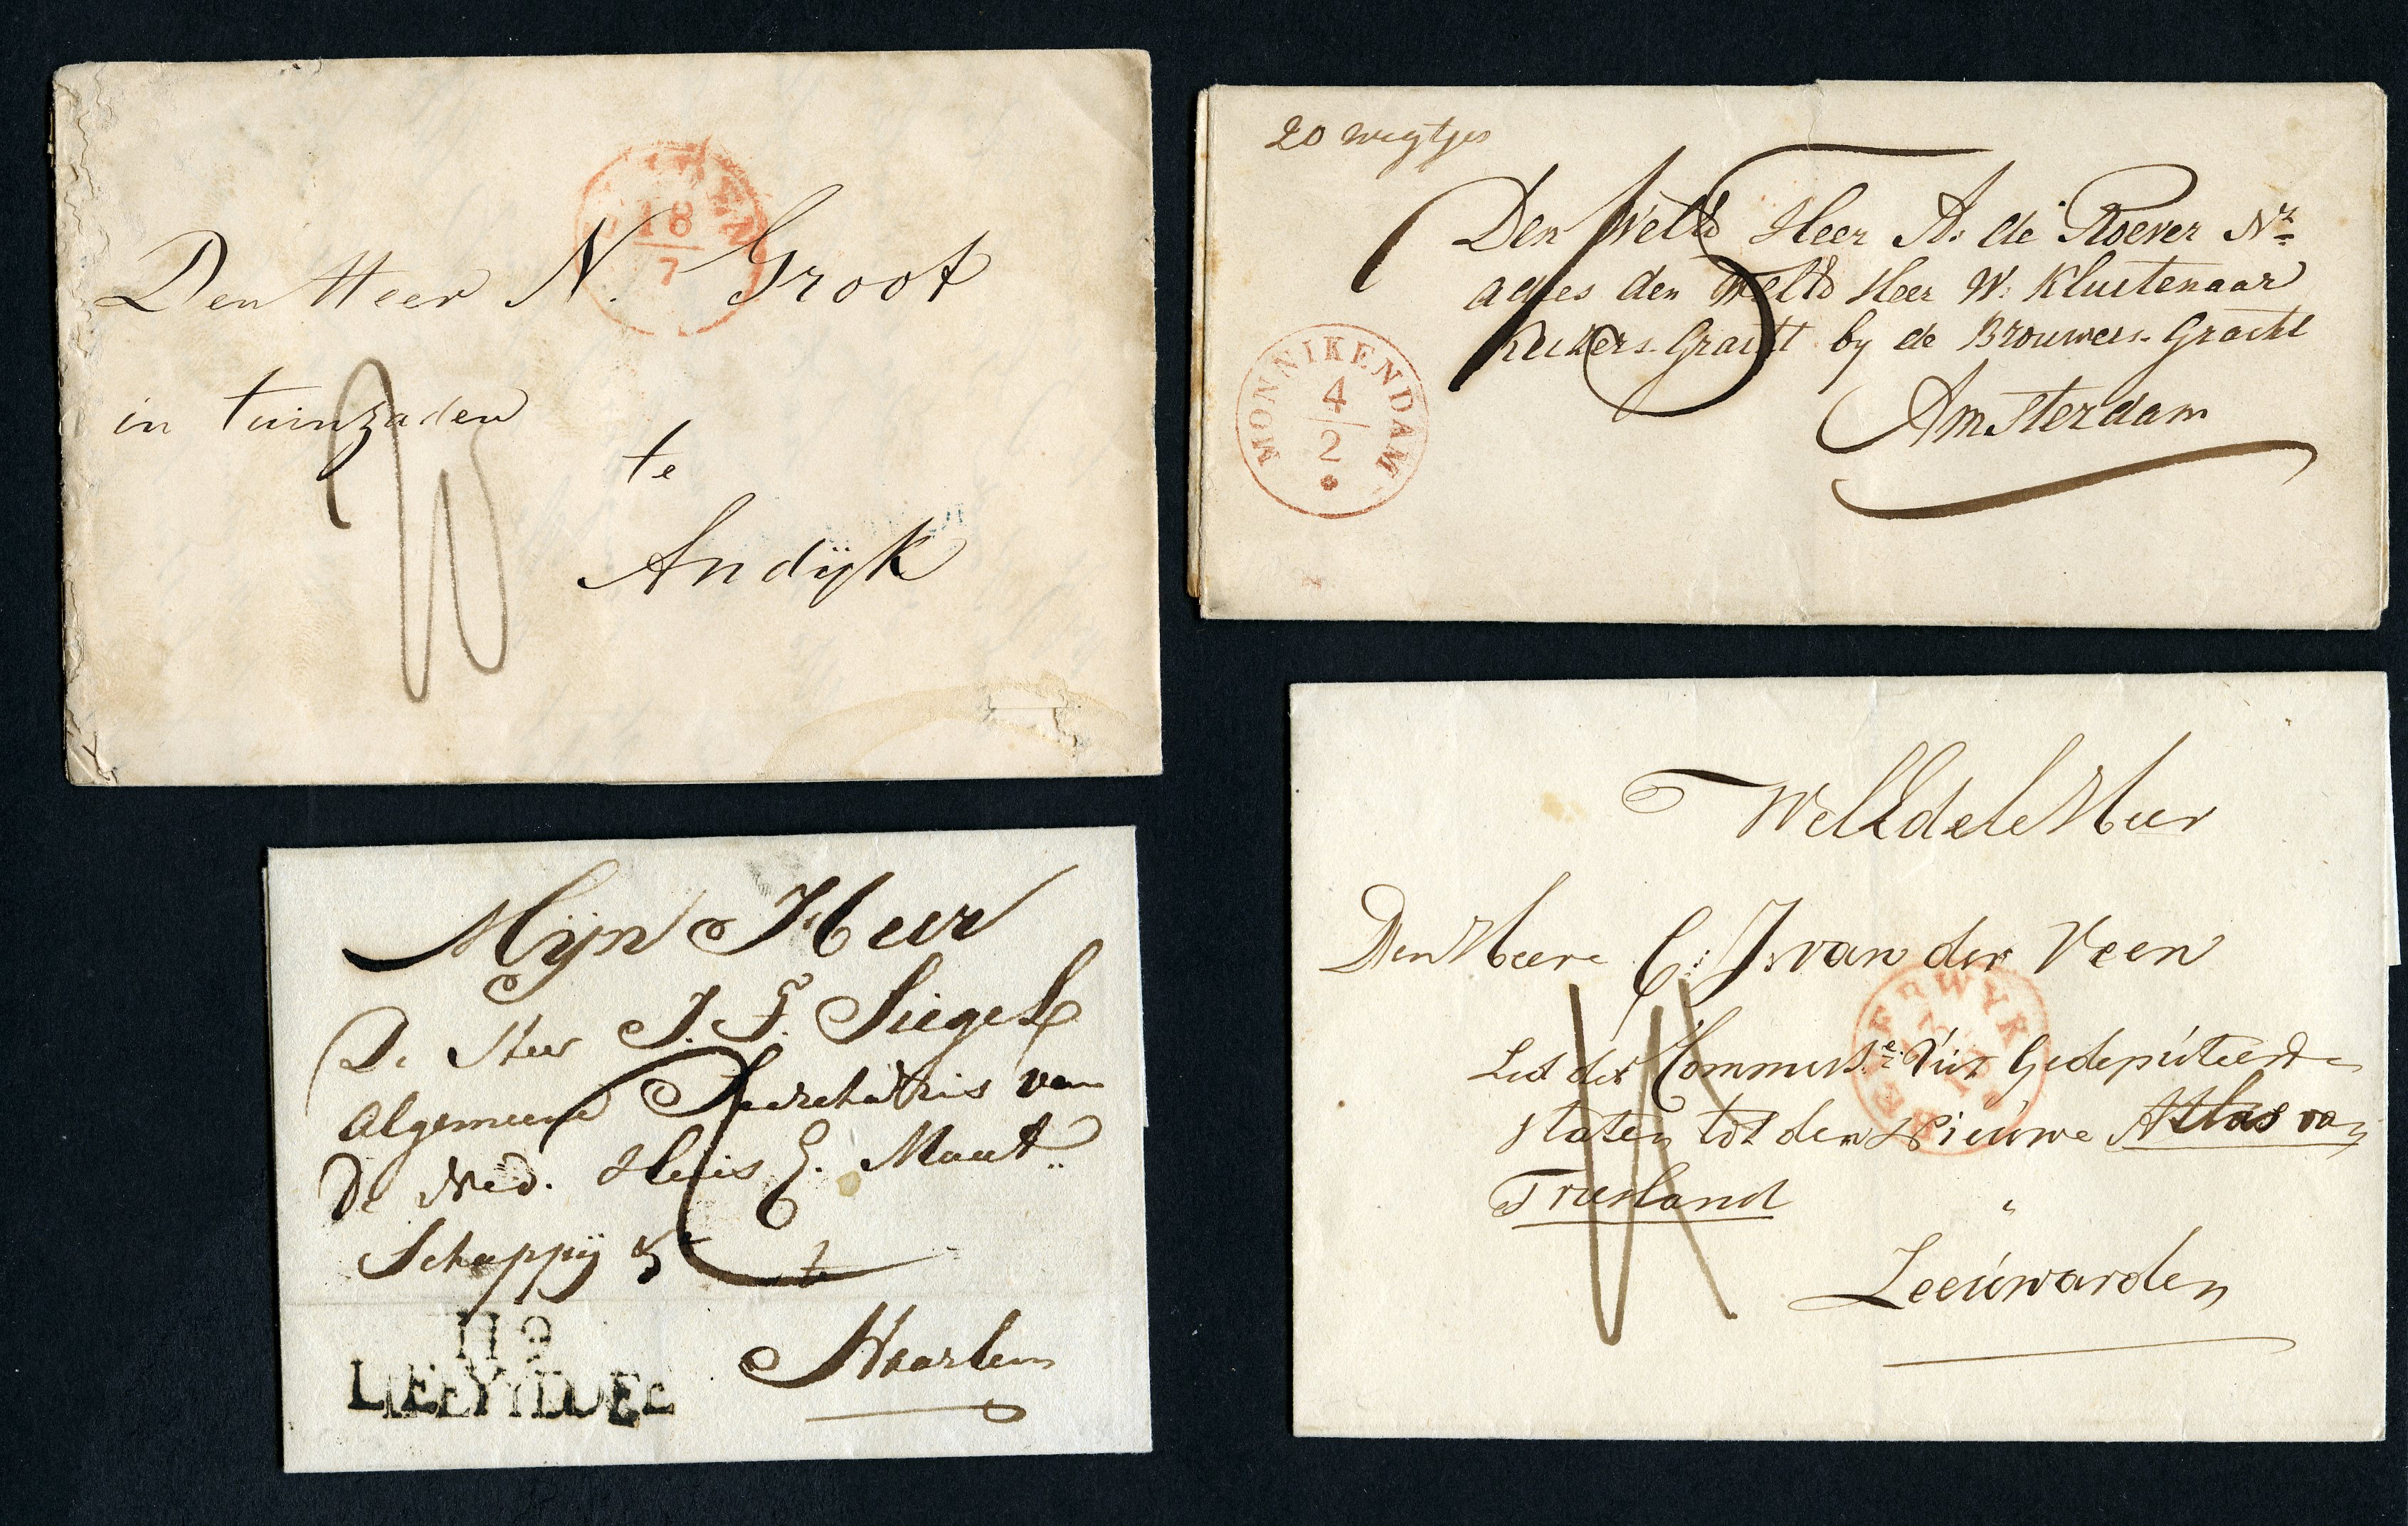 18
7
Den Heer N. Groot
in tuinzaden
te
Andijk
20 wigtjes
15
Den WelEd Heer A. de Roever Nz
adres den WelEd Heer W. Kluitenaar
Keizers Gracht by de Brouwers Gracht
Amsterdam
MONNIKENDAM
4
2
Mijn Heer
De Heer J. F. Siegel
Algemeene Secretaris van
De Ned. Huis. E. Maat..
Schappij &
te
Haarlem
119
WelEdele Heer
Den Heere C: J. van der Veen
Lid der Commisse. uit Gedeputeerde
staten tot den Nieuwe Atlas van
Friesland
Leeuwarden
BEVERWYK